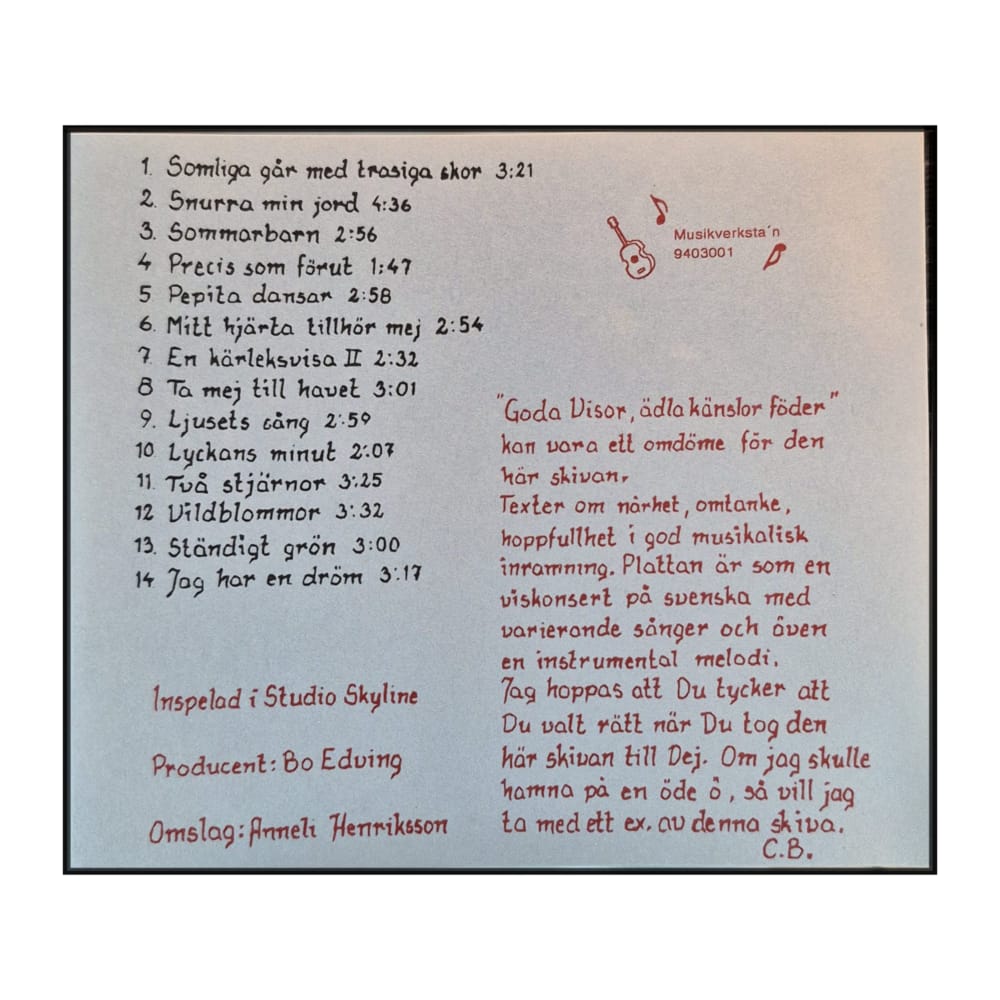 1. Somliga går med trasiga skor 3:21
2. Snurra min jord 4:36
3. Sommarbarn 2:56
4 Precis som förut 1:47
5 Pepita dansar 2:58
6. Mitt hjärta tillhör mej 2:54
7. En kärleksvisa II 2:32
8 Ta mej till havet 3:01
9. Ljusets sång 2:59
10. Lyckans minut 2:07
11. Två stjärnor 3:25
12 Vildblommor 3:32
13. Ständigt grön 3:00
14 Jag har en dröm 3:17
Inspelad i Studio Skyline
Producent: Bo Edving
Omslag: Anneli Henriksson
Musikverksta´n
9403001
"Goda Visor, ädla känslor föder"
kan vara ett omdöme för den
här skivan.
Texter om närhet, omtanke,
hoppfullhet i god musikalisk
inramning. Plattan är som en
viskonsert på svenska med
varierande sånger och även
en instrumental melodi.
Jag hoppas att Du tycker att
Du valt rätt när Du tog den
här skivan till Dej. Om jag skulle
hamna på en öde ö, så vill jag
ta med ett ex. av denna skiva.
C.B.